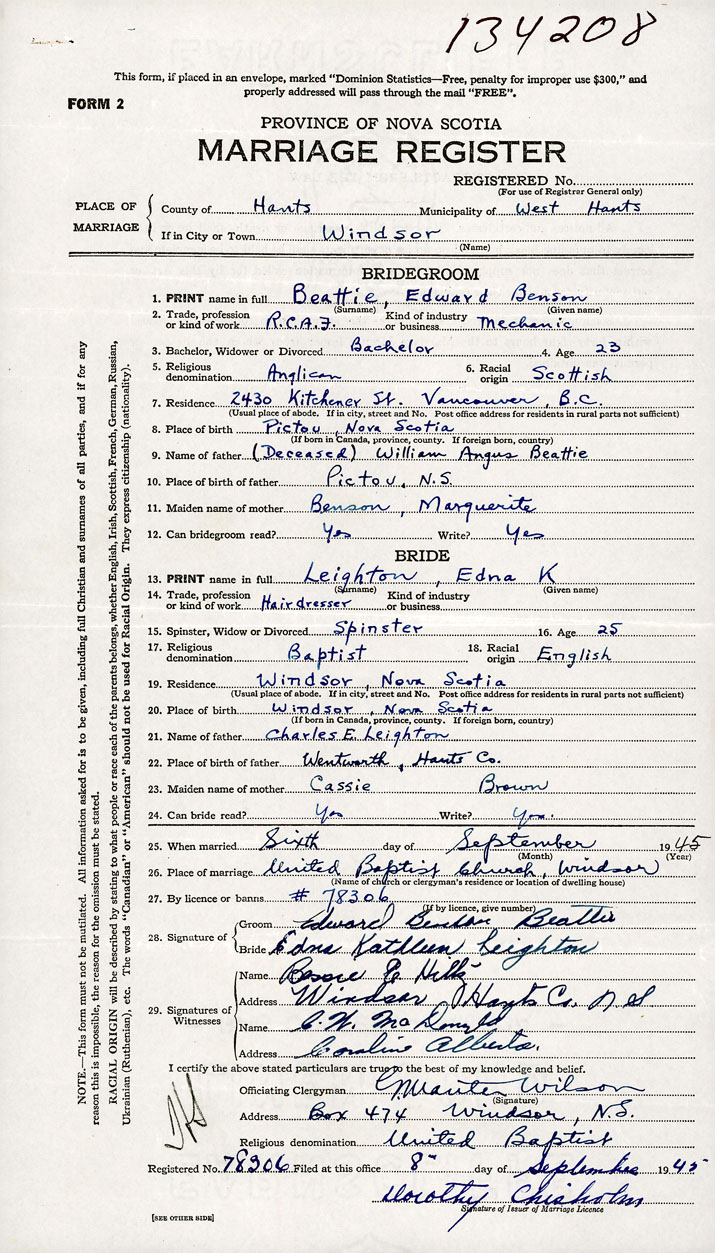 134208
This form, if placed in an envelope, marked "Dominion Statistics—Free, penalty for improper use $300," and
properly addressed will pass through the mail "FREE".
FORM 2
PROVINCE OF NOVA SCOTIA
MARRIAGE REGISTER
REGISTERED No.
(For use of Registrar General only)
PLACE OF MARRIAGE
County of Hants Municipality of West Hants
If in City or Town Windsor
(Name)
BRIDEGROOM
1. PRINT name in full Beattie, Edward Benson
(Surname) (Given name)
2. Trade, profession or kind of work R.C.A.F. Kind of industry or business Mechanic
3. Bachelor, Widower or Divorced Bachelor 4. Age 23
5. Religious denomination Anglican 6. Racial origin Scottish
7. Residence 2430 Kitchener St. Vancouver, B.C.
(Usual place of abode. If in city, street and No. Post office address for residents in rural parts not sufficient)
8. Place of birth Pictou, Nova Scotia
(If born in Canada, province, county. If foreign born, country)
9. Name of father (Deceased) William Angus Beattie
10. Place of birth of father Pictou, N.S.
11. Maiden name of mother Benson, Marguerite
12. Can bridegroom read? Yes Write? Yes
BRIDE
13. PRINT name in full Leighton, Edna K
(Surname) (Given name)
14. Trade, profession or kind of work Hairdresser Kind of industry or business
15. Spinster, Widow or Divorced Spinster 16. Age 25
17. Religious denomination Baptist 18. Racial origin English
19. Residence Windsor, Nova Scotia
(Usual place of abode. If in city, street and No. Post office address for residents in rural parts not sufficient)
20. Place of birth Windsor, Nova Scotia
(If born in Canada, province, county. If foreign born, country)
21. Name of father Charles E. Leighton
22. Place of birth of father Wentworth, Hants Co.
23. Maiden name of mother Cassie Brown
24. Can bride read? Yes Write? Yes.
25. When married Sixth day of September 1945
(Month) (Year)
26. Place of marriage United Baptist Church, Windsor
(Name of church or clergyman's residence or location of dwelling house)
27. By licence or banns # 78306
(If by licence, give number)
28. Signature of
Groom Edward Benson Beattie
Bride Edna Kathleen Leighton
29. Signatures of Witnesses
Name Bessie
Address Windsor, Hants Co. N S
Name C. W. McDonald
Address Caroline Alberta.
I certify the above stated particulars are true to the best of my knowledge and belief.
Officiating Clergyman Wilson
(Signature)
Address Box 474 Windsor, N.S.
Religious denomination United Baptist
Registered No. 78306 Filed at this office 8th day of September 1945
Dorothy Chisholm
Signature of Issuer of Marriage Licence
[SEE OTHER SIDE]
NOTE.—This form must not be mutilated. All information asked for is to be given, including full Christian and surnames of all parties, and if for any
reason this is impossible, the reason for the omission must be stated.
RACIAL ORIGIN will be described by stating to what people or race each of the parents belongs, whether English, Irish, Scottish, French, German, Russian,
Ukrainian (Ruthenian), etc. The words "Canadian" or "American" should not be used for Racial Origin. They express citizenship (nationality).